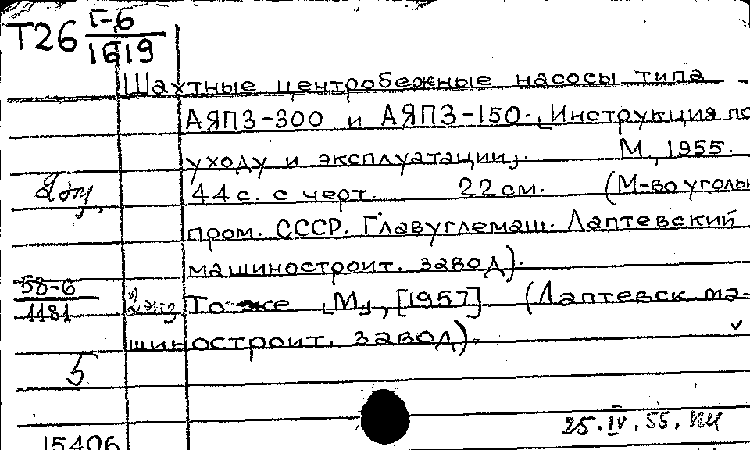 Т26 Г-6
1619
Шахтные центробежные насосы типа
АЯПЗ-300 и АЯПЗ-150. [Инструкция по
уходу и эксплуатации].    М., 1955.
44 с. с черт.    22 см.    (М-во угольн
пром. СССР. Главуглемаш. Лаптевский
машиностроит. завод).
58-6
1181
То же [М.], [1957]    (Лаптевск. ма-
шиностроит. завод).
5
25.IV.55.
15406